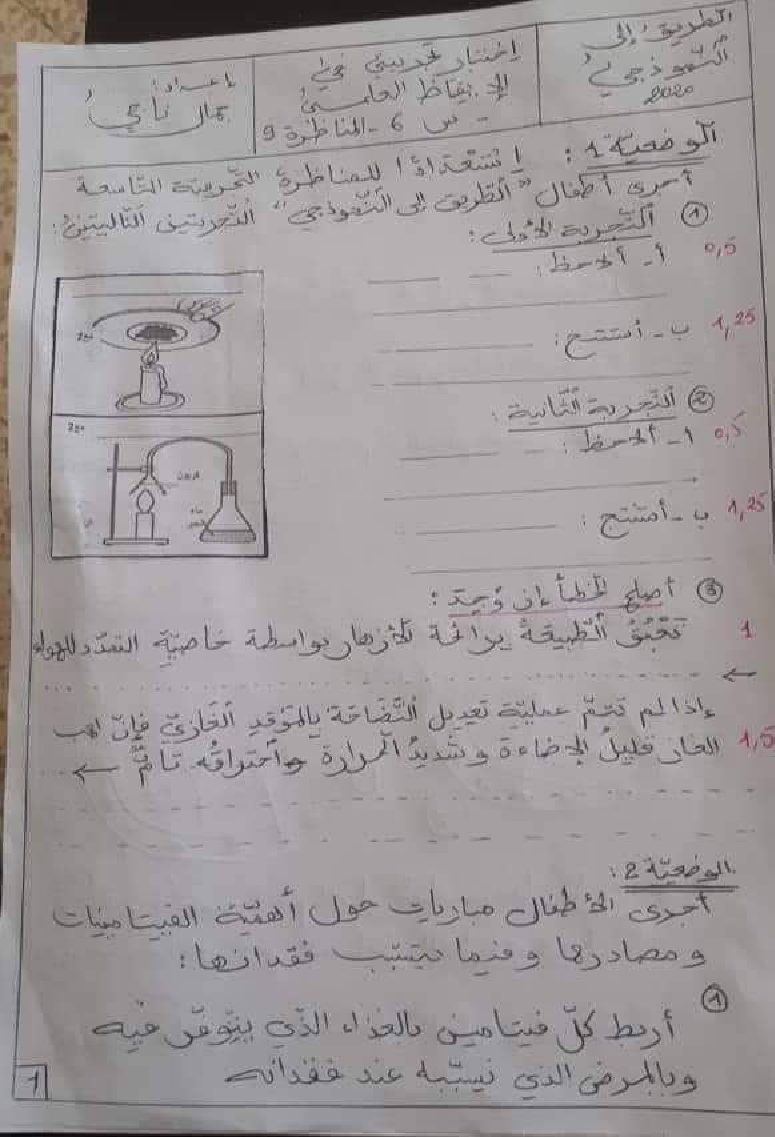 الطريق إلى
النموذجي
2020
اختبار تجريبي في
الإيقاظ العلمي
س 6 - المناظرة 9
إعداد:
جمال ناجي
الوضعية 1: استعدادا للمناظرة التجريبية التاسعة
أجرى أطفال "الطريق إلى النموذجي" التجربتين التاليتين:
① التجربة الأولى:
0,5 أ- ألاحظ:
1,25 ب- أستنتج:
② التجربة الثانية:
0,5 أ- ألاحظ:
1,25 ب- أستنتج:
③ أصلح الخطأ إن وجد:
1 تعبق الطبيعة برائحة الأزهار بواسطة خاصية التمدد للهواء
←
إذا لم تتم عملية تعديل النضاحة بالموقد الغازي فإن لهب
1,5 الغاز قليل الإضاءة وشديد الحرارة واحتراقه تام ←
الوضعية 2:
أجرى الأطفال مباريات حول أهمية الفيتامينات
ومصادرها وفيما يتسبب فقدانها:
① أربط كل فيتامين بالغذاء الذي يتوفر فيه
وبالمرض الذي يسببه عند فقدانه
1